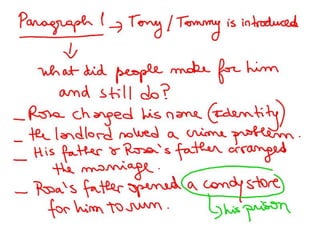 Paragraph 1 → Tony/Tommy is introduced
↓
what did people make for him
and still do?
– Rosa changed his name (identity)
– the landlord solved a crime problem.
– His father & Rosa's father arranged
the marriage.
– Rosa's father opened a candy store
for him to run. ↳ his prison